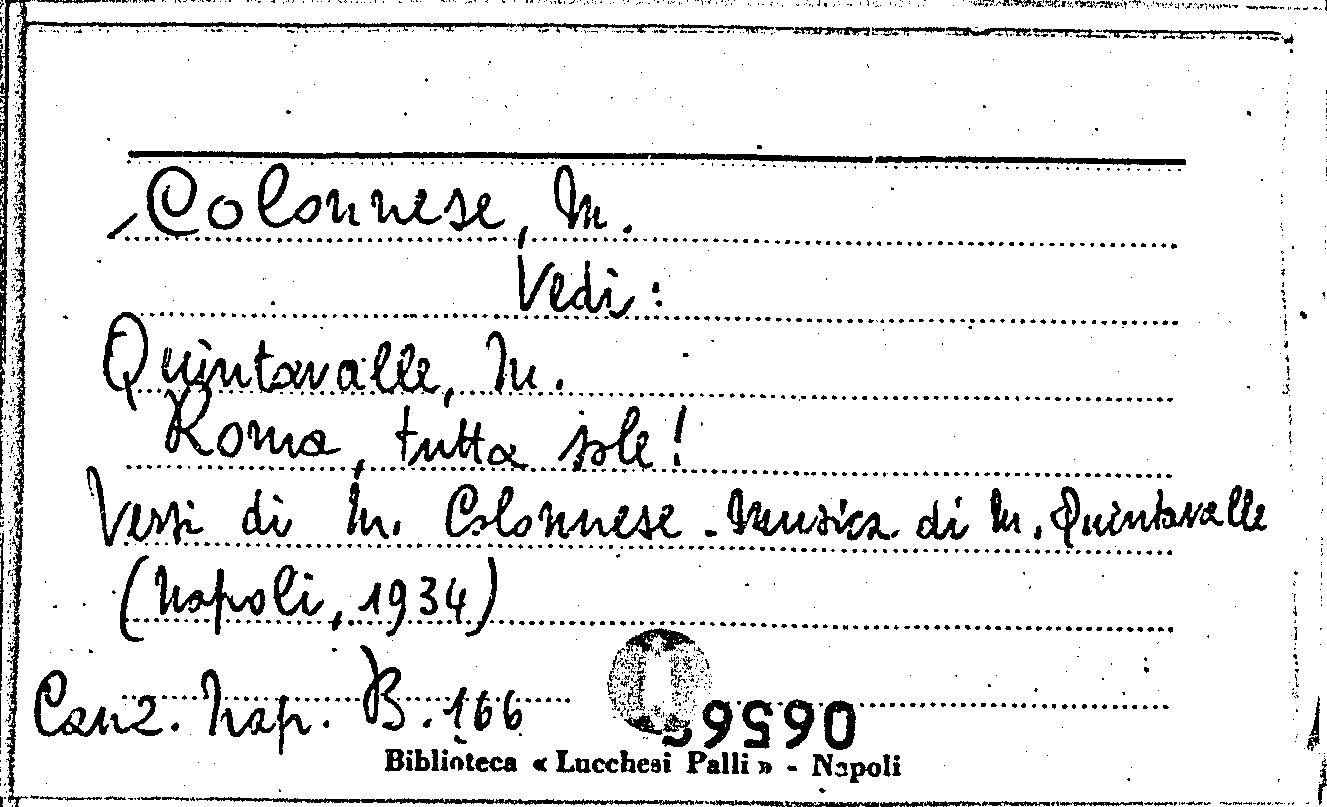 Colonnese, M.
Vedi:
Quintavalle, M.
Roma, tutta sole!
Versi di M. Colonnese - Musica di M. Quintavalle
(Napoli, 1934)
Canz. Nap. B. 166
Biblioteca « Lucchesi Palli » - Napoli